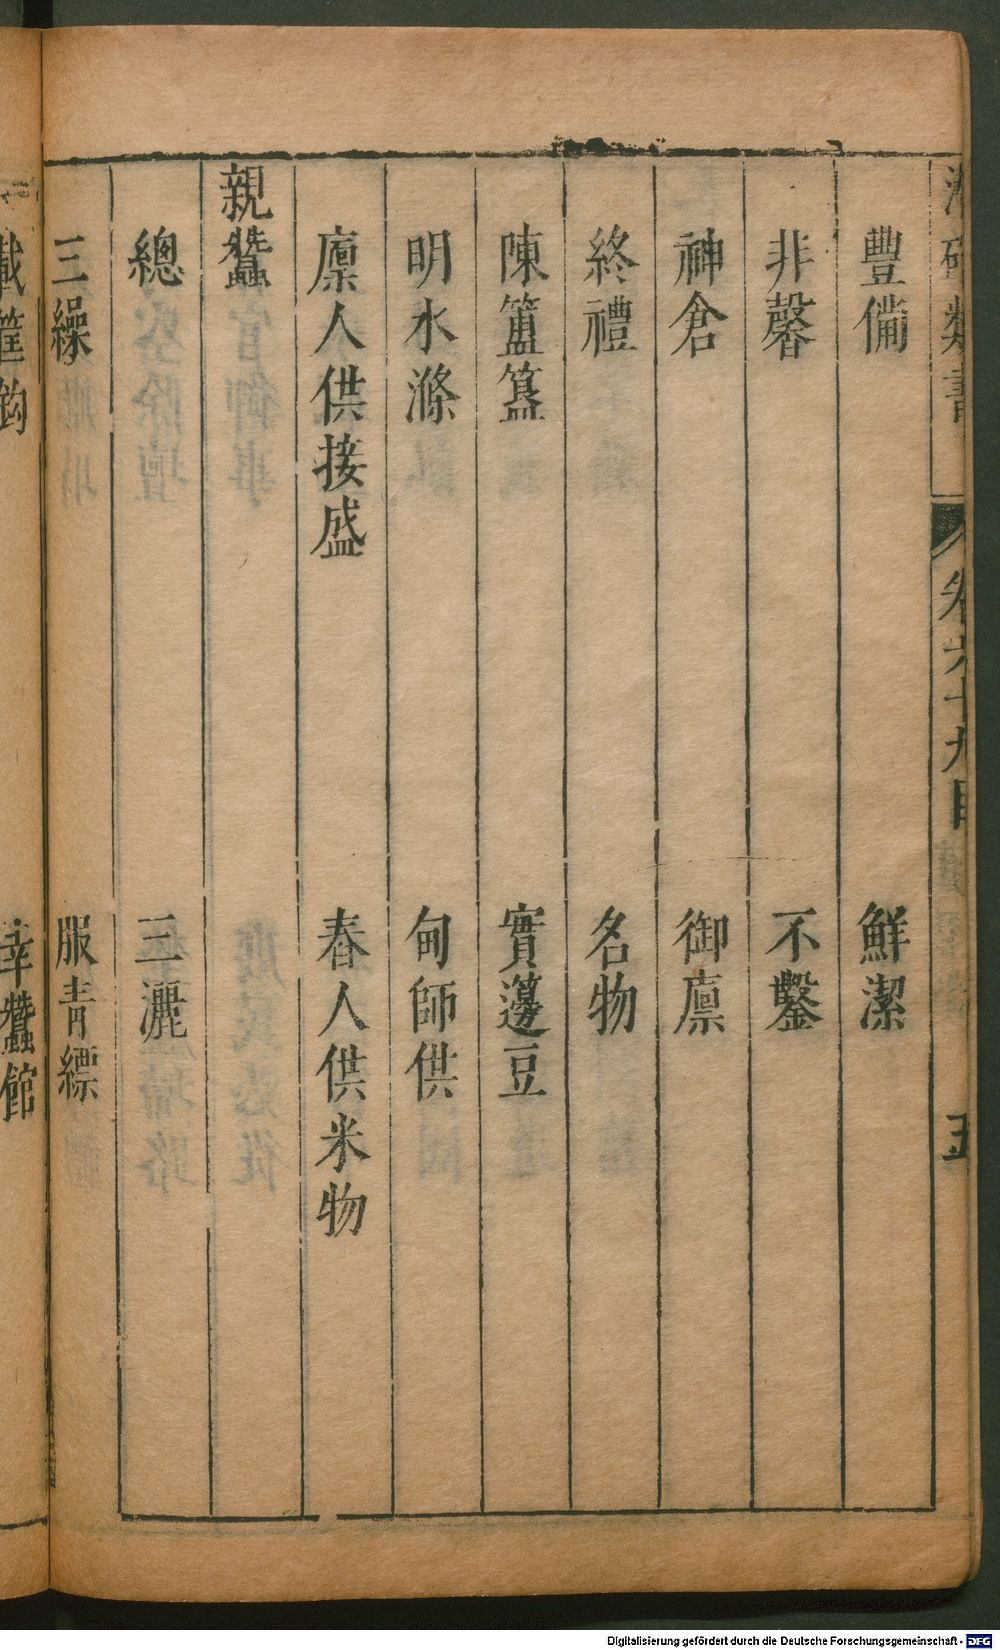 淵鑑類書 卷六十九目 五
豐備 鮮潔
非馨 不鑿
神倉 御廪
終禮 名物
陳簠簋 實籩豆
明水滌 甸師供
廪人供接盛 舂人供米物
親蠶
總 三灑
三繅 服青縹
筐鈎 幸蠶館
Digitalisierung gefördert durch die Deutsche Forschungsgemeinschaft - DFG